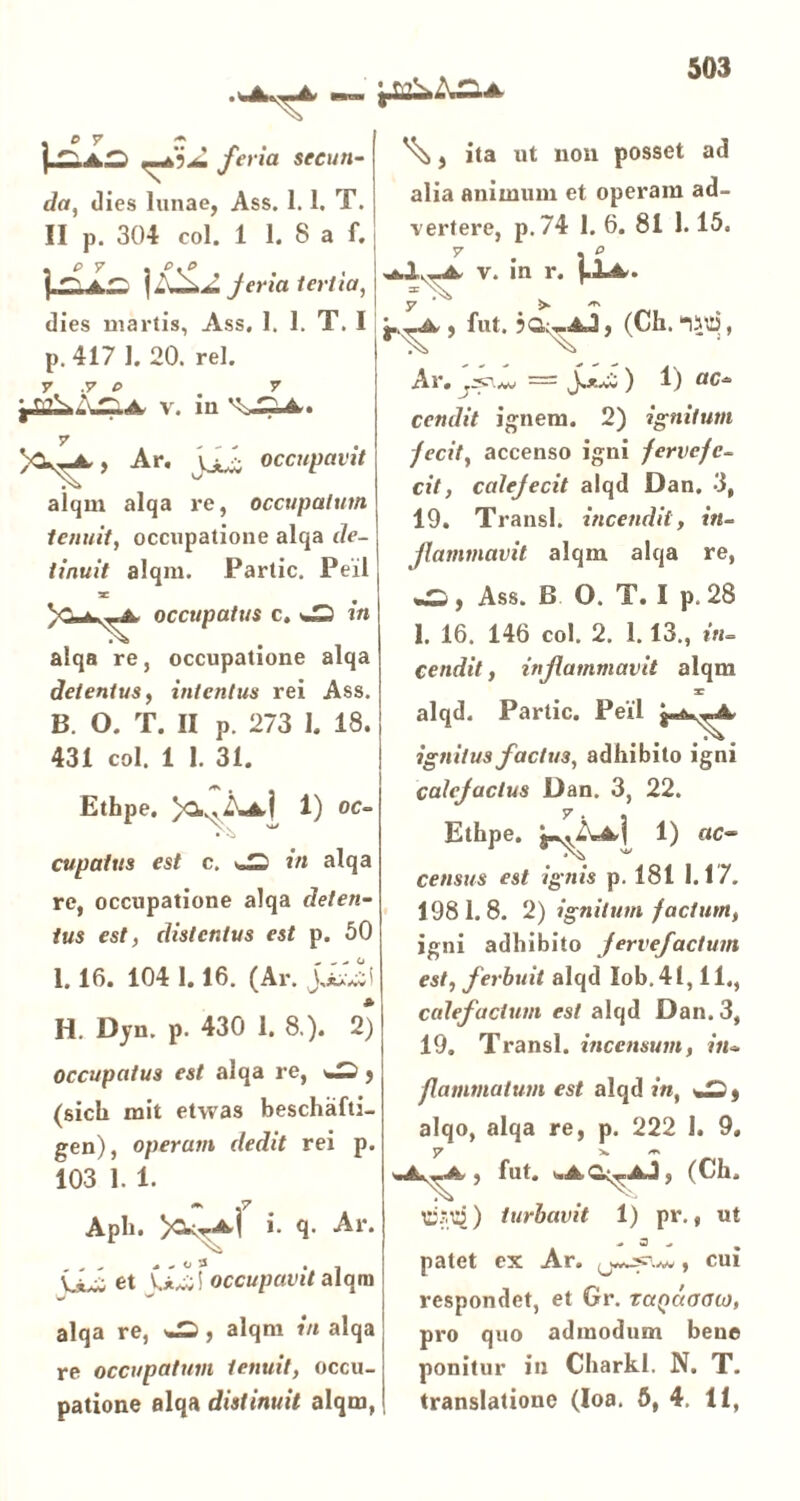 503
ܬܪܝܢ ܒܫܒܐ feria secun-
da, dies lunae, Ass. l. l. T.
II p. 304 col. 1 l. 8 a f.
ܬܠܬܐ ܒܫܒܐ feria tertia,
dies martis, Ass. l. l. T. I
p. 417 l. 20. rel.
v. in
ܫܓܡ, Ar. شغل occupavit
alqm alqa re, occupatum
tenuit, occupatione alqa de-
tinuit alqm. Partic. Peïl
ܫܓܝܡ occupatus c. ܒ in
alqa re, occupatione alqa
detentus, intentus rei Ass.
B. O. T. II p. 273 l. 18.
431 col. 1 l. 31.
Ethpe. ܐܫܬܓܡ 1) oc-
cupatus est c. ܒ in alqa
re, occupatione alqa deten-
tus est, distentus est p. 50
l. 16. 104 l. 16. (Ar. اشتغل
H. Dyn. p. 430 l. 8.). 2)
occupatus est alqa re, ܒ,
(sich mit etwas beschäfti-
gen), operam dedit rei p.
103 l. 1.
Aph. ܐܫܓܡ i. q. Ar.
شغل et اشغل occupavit alqm
alqa re, ܒ, alqm in alqa
re occupatum tenuit, occu-
patione alqa distinuit alqm,
ܠ, ita ut non posset ad
alia animum et operam ad-
vertere, p. 74 l. 6. 81 l. 15.
v. in r.
ܫܓܪ, fut. ܢܫܓܘܪ, (Ch. שגר,
Ar. سجر = شعل) 1) ac-
cendit ignem. 2) ignitum
fecit, accenso igni fervefe-
cit, calefecit alqd Dan. 3,
19. Transl. incendit, in-
flammavit alqm alqa re,
ܒ, Ass. B O. T. I p. 28
l. 16. 146 col. 2. l. 13., in-
cendit, inflammavit alqm
alqd. Partic. Peïl ܫܓܝܪ
ignitus factus, adhibito igni
calefactus Dan. 3, 22.
Ethpe. ܐܫܬܓܪ 1) ac-
census est ignis p. 181 l. 17.
198 l. 8. 2) ignitum factum,
igni adhibito fervefactum
est, ferbuit alqd Iob. 41, 11.,
calefactum est alqd Dan. 3,
19. Transl. incensum, in-
flammatum est alqd in, ܒ,
alqo, alqa re, p. 222 l. 9.
ܫܓܫ, fut. ܢܫܓܘܫ, (Ch.
שגש) turbavit 1) pr., ut
patet ex Ar. سجس, cui
respondet, et Gr. ταράσσω,
pro quo admodum bene
ponitur in Charkl. N. T.
translatione (Ioa. 5, 4. 11,